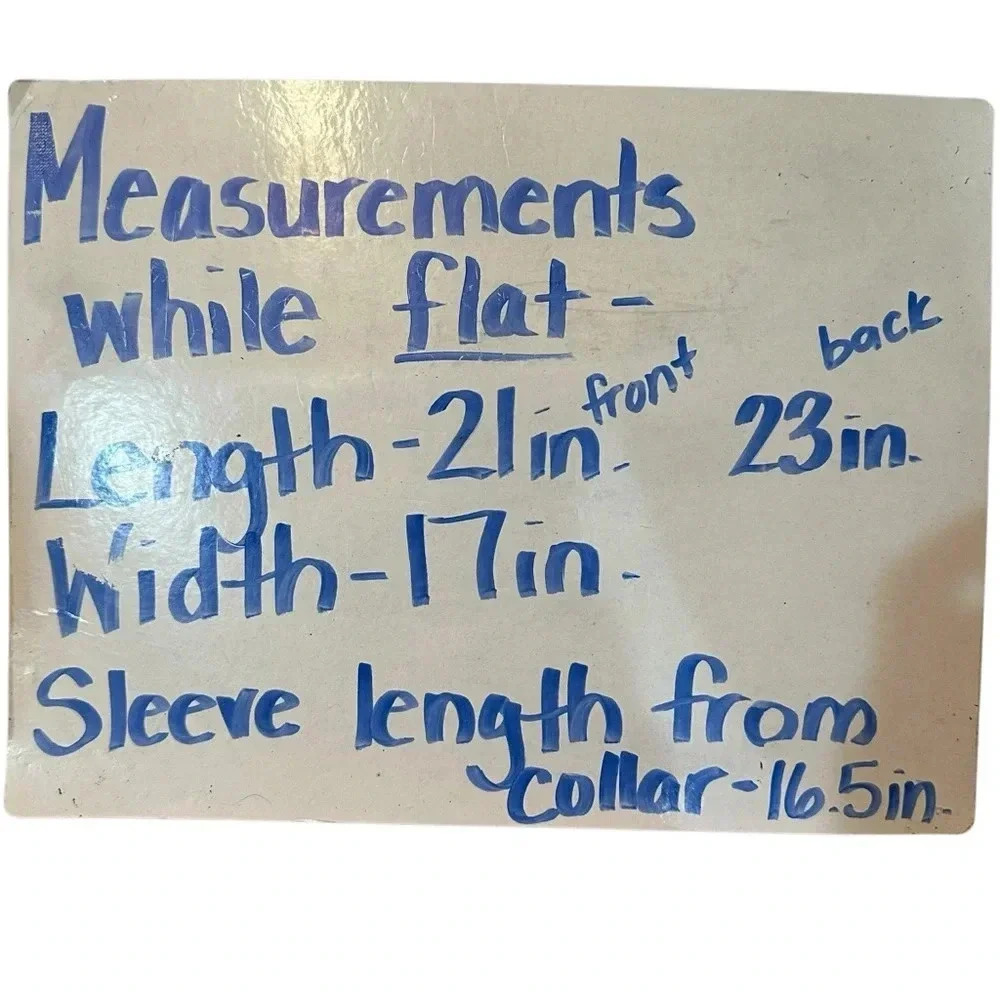 Measurements
while flat -
Length - 21 in. front 23 in. back
Width - 17 in.
Sleeve length from
collar - 16.5 in.